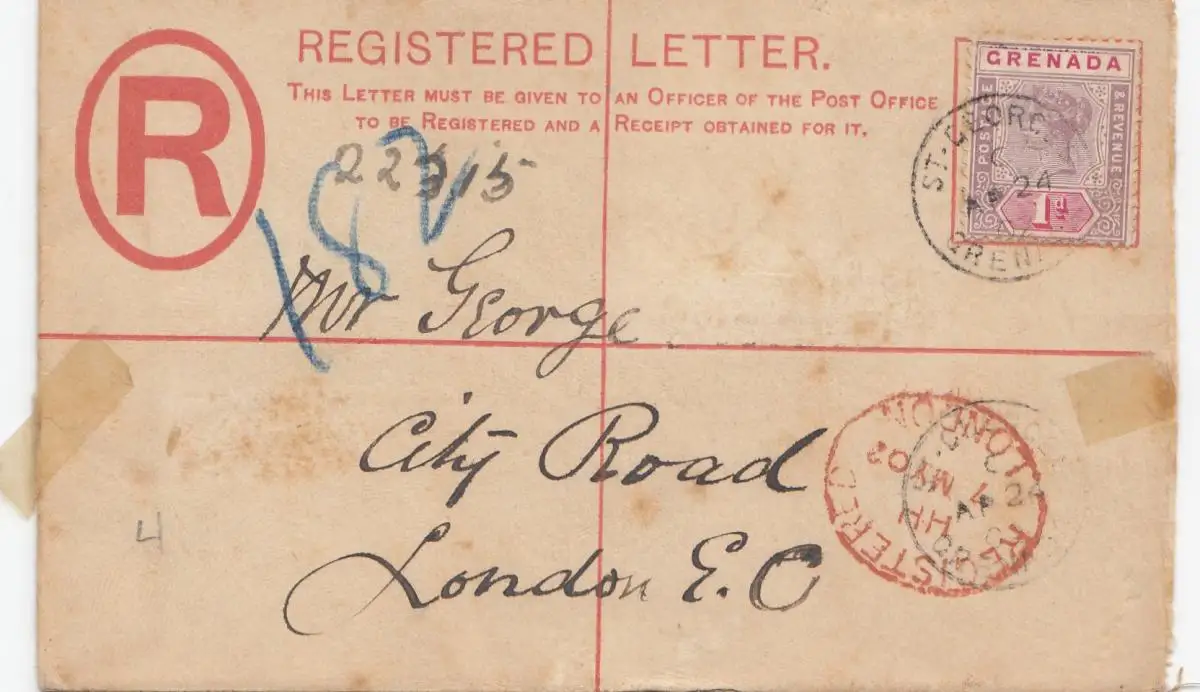 REGISTERED LETTER.
THIS LETTER MUST BE GIVEN TO AN OFFICER OF THE POST OFFICE
TO BE REGISTERED AND A RECEIPT OBTAINED FOR IT.
R
GRENADA
POSTAGE & REVENUE
1d
ST. GEORGE
C
24
GREN
182
Mr George
City Road
London E.C
4
REGISTERED LONDON
7 MY 02
HH
C
AP 24